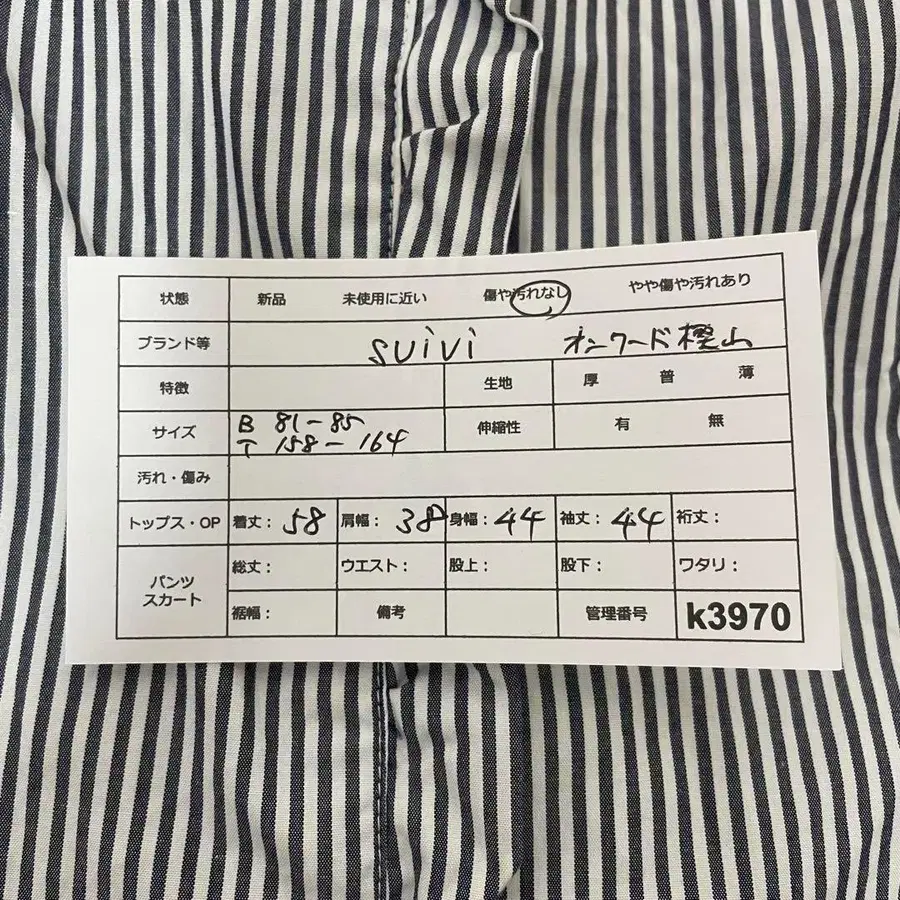 状態 新品 未使用に近い 傷や汚れなし やや傷や汚れあり
ブランド等 SUiVi オンワード樫山
特徴 生地 厚 普 薄
サイズ B 81-85 T 158-164 伸縮性 有 無
汚れ・傷み
トップス・OP 着丈: 58 肩幅: 38 身幅: 44 袖丈: 44 裄丈:
パンツ スカート 総丈: ウエスト: 股上: 股下: ワタリ:
裾幅: 備考 管理番号 k3970